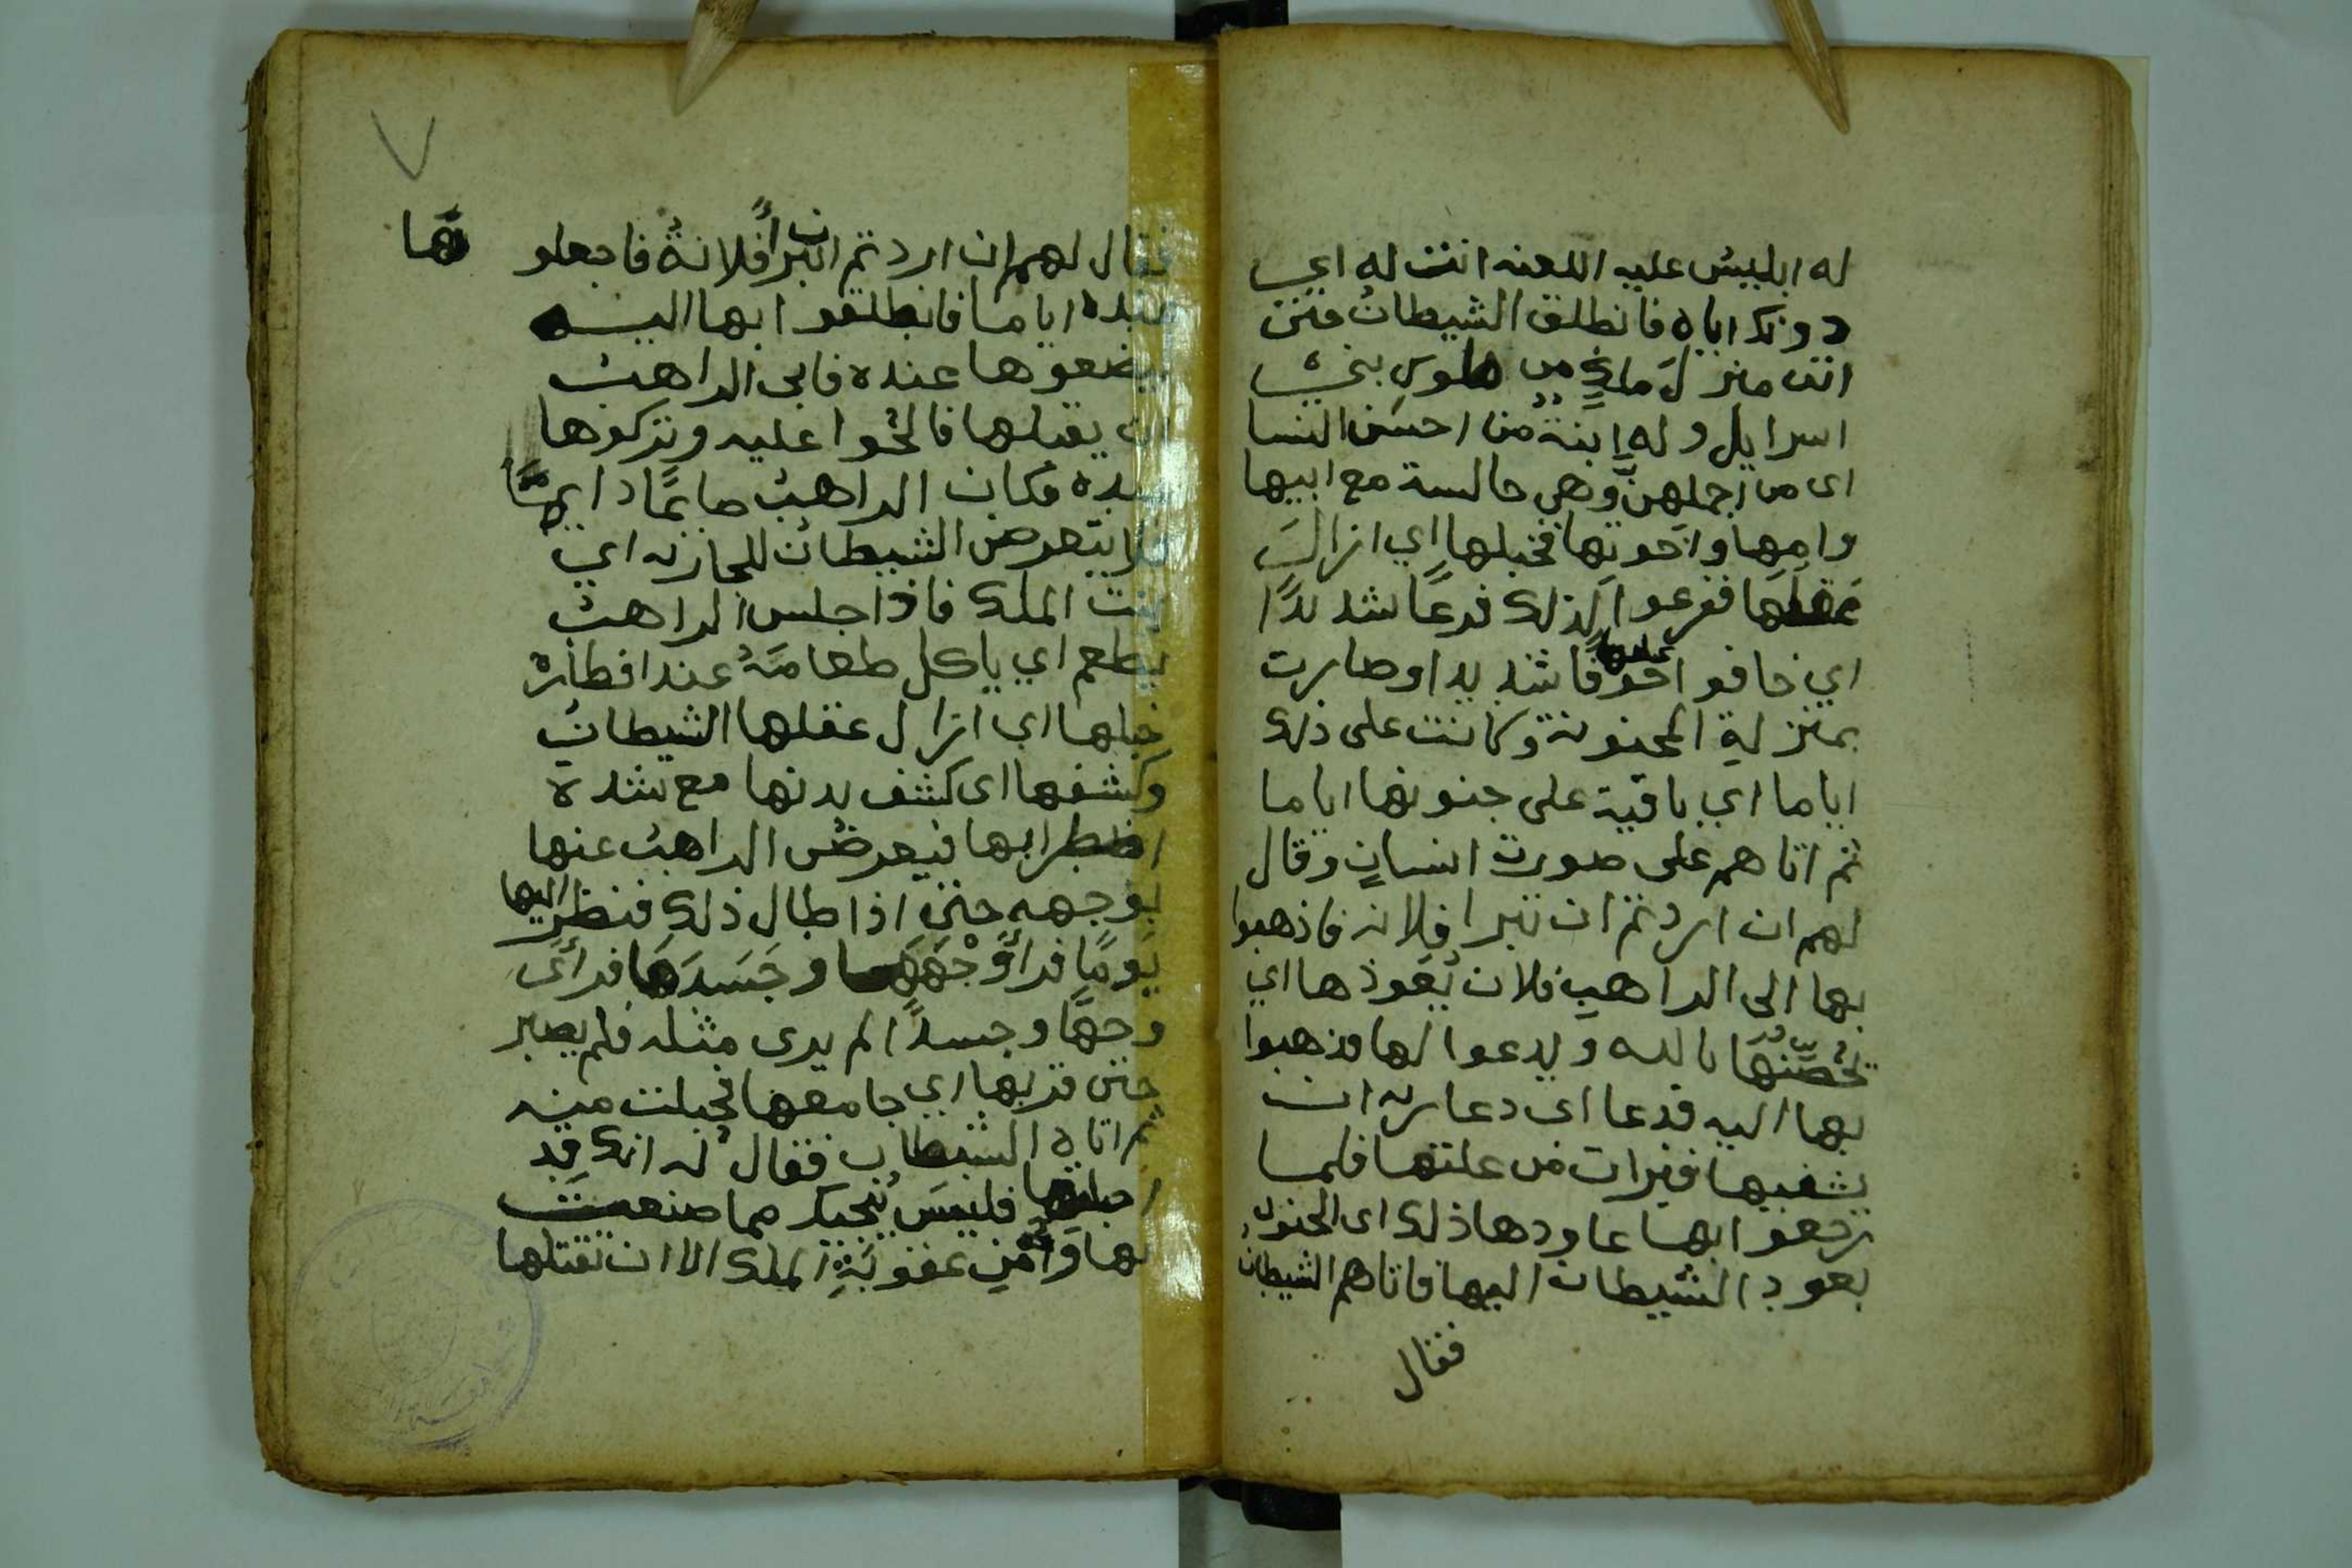 له ابليس عليه اللعنه انت له اي
دونك اياه فانطلق الشيطان حتى
اتى منزل ملكٍ من ملوك بني
اسرايل وله ابنة من احسن النسا
اى من اجملهنّ وهي جالسة مع ابيها
وامها واخوتها فخبلها اي ازال
عقلها ففزعوا لذلك فزعًا شديدًا
اي خافوا عليها خوفا شديدا وصارت
بمنزلة المجنونة وكانت على ذلك
اياما اي باقية على جنونها اياما
ثم اتاهم على صورت انسانٍ وقال
لهم ان اردتم ان تبرا فلانه فاذهبوا
بها الى الراهب فلان يُعَوذها اي
يُحصّنُهَا بالله ويدعوا لها فذهبوا
بها اليه فدعا اى دعا ربه ان
يشفيها فبرات من علتها فلما
رجعوا بها عاودها ذلك اى الجنون
بعود الشيطان اليها فاتاهم الشيطان
فقال
٧
فقال لهم ان اردتم ان تبرأ فلانةُ فاجعلوها
عنده اياما فانطلقوا بها اليه
ليضعوها عنده فابى الراهبُ
ان يقبلها فالحّوا عليه وتركوها
عنده فكان الراهبُ صايمًا دايمًا
فلا يتعرض الشيطان للجاريه اي
بنت الملك فاذا جلس الراهبُ
يطعم اي ياكل طعامَهُ عند افطاره
خبلها اي ازال عقلها الشيطانُ
وكشفها اى كشف بدنها مع شدة
اضطرابها فيعرضُ الراهبُ عنها
بوجهه حتى اذا طال ذلك فنظر اليها
يَومًا فرأى وَجْهَهَا وجَسَدَهَا فرأى
وجهًا وجسدًا لم يرى مثله فلم يصبر
حتى قربها اي جامعها فحبلت منه
ثم اتاه الشيطان فقال له انك قد
احبلتها فليسَ يُنجيك مما صنعت
بها وَ من عقوبَةِ الملك الا ان تقتلها